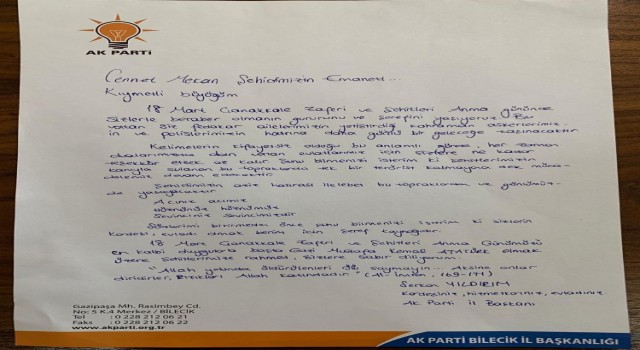 AK PARTİ
Cennet Mekan Şehidimizin Emaneti...
Kıymetli büyüğüm
18 Mart Çanakkale Zaferi ve Şehitleri Anma gününde
sizlerle beraber olmanın gururunu ve şerefini yaşıyoruz. Bu
vatan siz fedakar ailelerimizin yetiştirdiği kahraman askerlerimiz-
in ve polislerimizin hatrına daha güçlü bir geleceğe taşınacaktır.
Kelimelerin kifayetsiz olduğu bu anlamlı günde, her zaman
dualarımızda olan aziz için sizlere ne kadar
teşekkür etsek az kalır. Şunu bilmenizi isterim ki şehitlerimizin
kanıyla sulanan bu topraklarda tek bir terörist kalmayana dek müca-
delemiz devam edecektir.
Şehidimizin aziz hatırası ilelebet bu topraklarda ve gönlümüz-
de yaşayacaktır.
Acınız acımız
Hüznünüz hüznümüz
Sevinciniz sevincimizdir
Sözlerimi bitirmeden önce şunu bilmenizi isterim ki sizlerin
kardeşi, evladı olmak benim için şeref kaynağıdır.
18 Mart Çanakkale Zaferi ve Şehitleri Anma Günümüzü
en kalbi duygularla başta Gazi Mustafa Kemal ATATÜRK olmak
üzere şehitlerimize rahmet, sizlere sabır diliyorum.
"Allah yolunda öldürülenleri ölü saymayın. Aksine onlar
diridirler, Rızıkları Allah katındadır" (Al-i İmran, 169-171)
Serkan YILDIRIM
Kardeşiniz, hizmetkarınız, evladınız
AK Parti İl Başkanı
Gazipaşa Mh. Rasimbey Cd.
No: 5 K.4 Merkez / BİLECİK
Tel : 0 228 212 06 21
Faks : 0 228 212 06 22
www.akparti.org.tr
AK PARTİ BİLECİK İL BAŞKANLIĞI